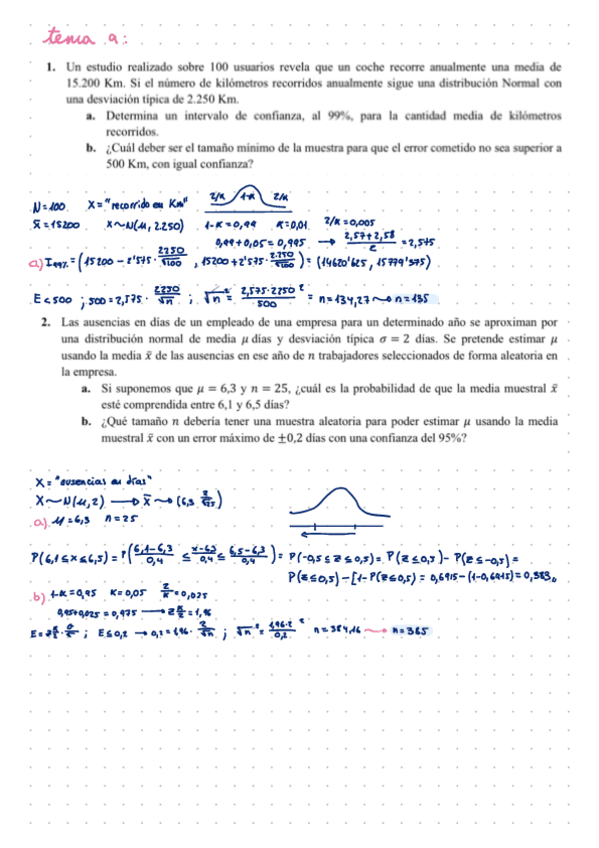 tema 9:
1. Un estudio realizado sobre 100 usuarios revela que un coche recorre anualmente una media de
15.200 Km. Si el número de kilómetros recorridos anualmente sigue una distribución Normal con
una desviación típica de 2.250 Km.
a. Determina un intervalo de confianza, al 99%, para la cantidad media de kilómetros
recorridos.
b. ¿Cuál deber ser el tamaño mínimo de la muestra para que el error cometido no sea superior a
500 Km, con igual confianza?
N=100 X="recorrido en Km" 2/α 1-α 2/α
x̄=15200 X~N(μ, 2250) 1-α=0,99 α=0,01 2/α=0,005
0,99+0,05=0,995 → (2,57+2,58)/2 = 2,575
a) I99%=(15200 - 2'575 · 2250/√100 , 15200+2'575 · 2250/√100) = (14620'625, 15779'375)
E<500 ; 500=2,575 · 2250/√n ; √n² = (2,575·2250/500)² = n=134,27 → n=135
2. Las ausencias en días de un empleado de una empresa para un determinado año se aproximan por
una distribución normal de media μ días y desviación típica σ = 2 días. Se pretende estimar μ
usando la media x̄ de las ausencias en ese año de n trabajadores seleccionados de forma aleatoria en
la empresa.
a. Si suponemos que μ = 6,3 y n = 25, ¿cuál es la probabilidad de que la media muestral x̄
esté comprendida entre 6,1 y 6,5 días?
b. ¿Qué tamaño n debería tener una muestra aleatoria para poder estimar μ usando la media
muestral x̄ con un error máximo de ±0,2 días con una confianza del 95%?
X="ausencias en días"
X~N(μ,2) → X̄ ~ (6,3, 2/√25)
a) μ=6,3 n=25
P(6,1≤x≤6,5) = P((6,1-6,3)/0,4 ≤ (x-6,3)/0,4 ≤ (6,5-6,3)/0,4) = P(-0,5≤z≤0,5) = P(z≤0,5) - P(z≤-0,5) =
P(z≤0,5) - [1-P(z≤0,5) = 0,6915-(1-0,6915) = 0,383
b) 1-α=0,95 α=0,05 2/α=0,025
0,95+0,025=0,975 → z α/2 = 1,96
E=z α/2 · σ/√n ; E≤0,2 → 0,2=1,96 · 2/√n ; √n² = (1,96·2/0,2)² n=384,16 → n=365